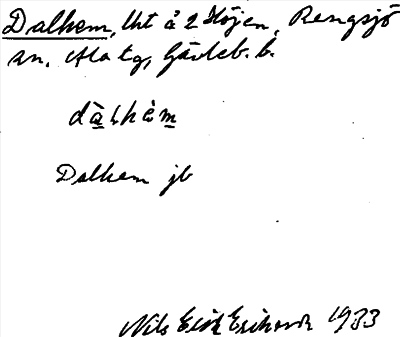 Dalhem, lht å 2 Höjen, Rengsjö
sn, Ala tg, Gävleb. l.
dàlhèm
Dalhem jb
Nils Erik Eriksson 1933